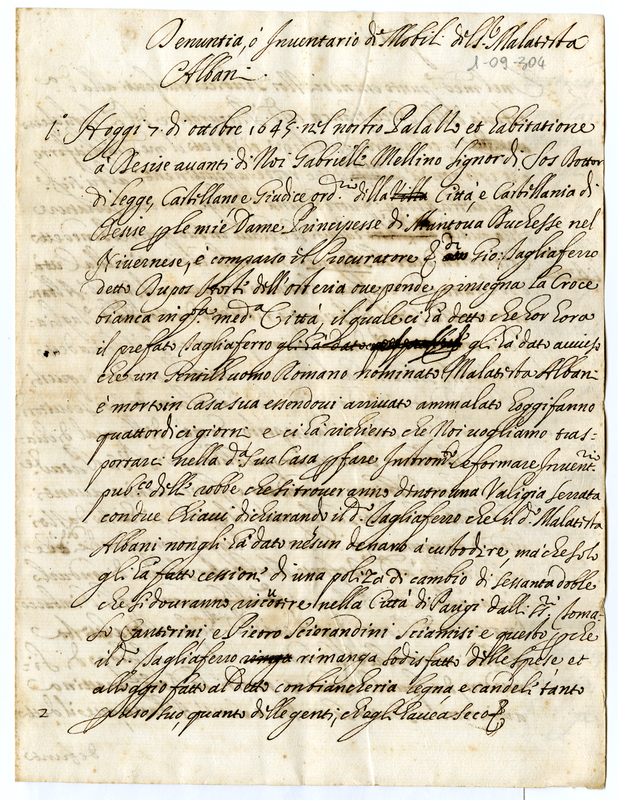 Denuntia, ó Inventario de Mobili del Sr. Malatesta
Albani.
1-09-304
1.º Hoggi 7. di ottobre 1645 nel nostro Palallo, et habitatione
à Desise avanti di Noi Gabriello Mellino signor di Sos Dottor
di legge, Castillano e Giudice ord.rio della Città, e Castillania di
Desise le mie Dame Principesse di Mantova Duchesse nel
Nivernese, è comparso il Procuratore di Gio: Tagliaferro
detto Dupos dell'osteria ove pende p insegna la Croce
bianca in q.sta med.a Città, il quale ci hà detto che hor hora
il prefato Tagliaferro gli hà dato avviso
che un Gentilhuomo Romano nominato Malatesta Albani
è morto in Casa sua essendovi arrivato ammalato hoggi fanno
quattordici giorni e ci hà richiesto che Noi vogliamo tras-
portarci nella d.a sua Casa p fare Instrom.to e formare Invent.rio
pub.co delle robbe che si troveranno dentro una Valigia serrata
con due Chiavi dichiarando il d.o Tagliaferro che il d.o Malatesta
Albani non gli hà dato nesun denaro à custodire, mà che solo
gli hà fatto cessione di una poliza di cambio di sessanta doble
che si dovranno riscotere nella Città di Parigi dalli Sri. Toma-
so Cantarini, e Pietro Sciorandini e questo p che
il d.o Tagliaferro rimanga sodisfatto delle spese et
alloggio fatto al Detto con biancheria legna, e candeli tanto
p uso suo, quanto delle genti, ch'egli havea seco
2